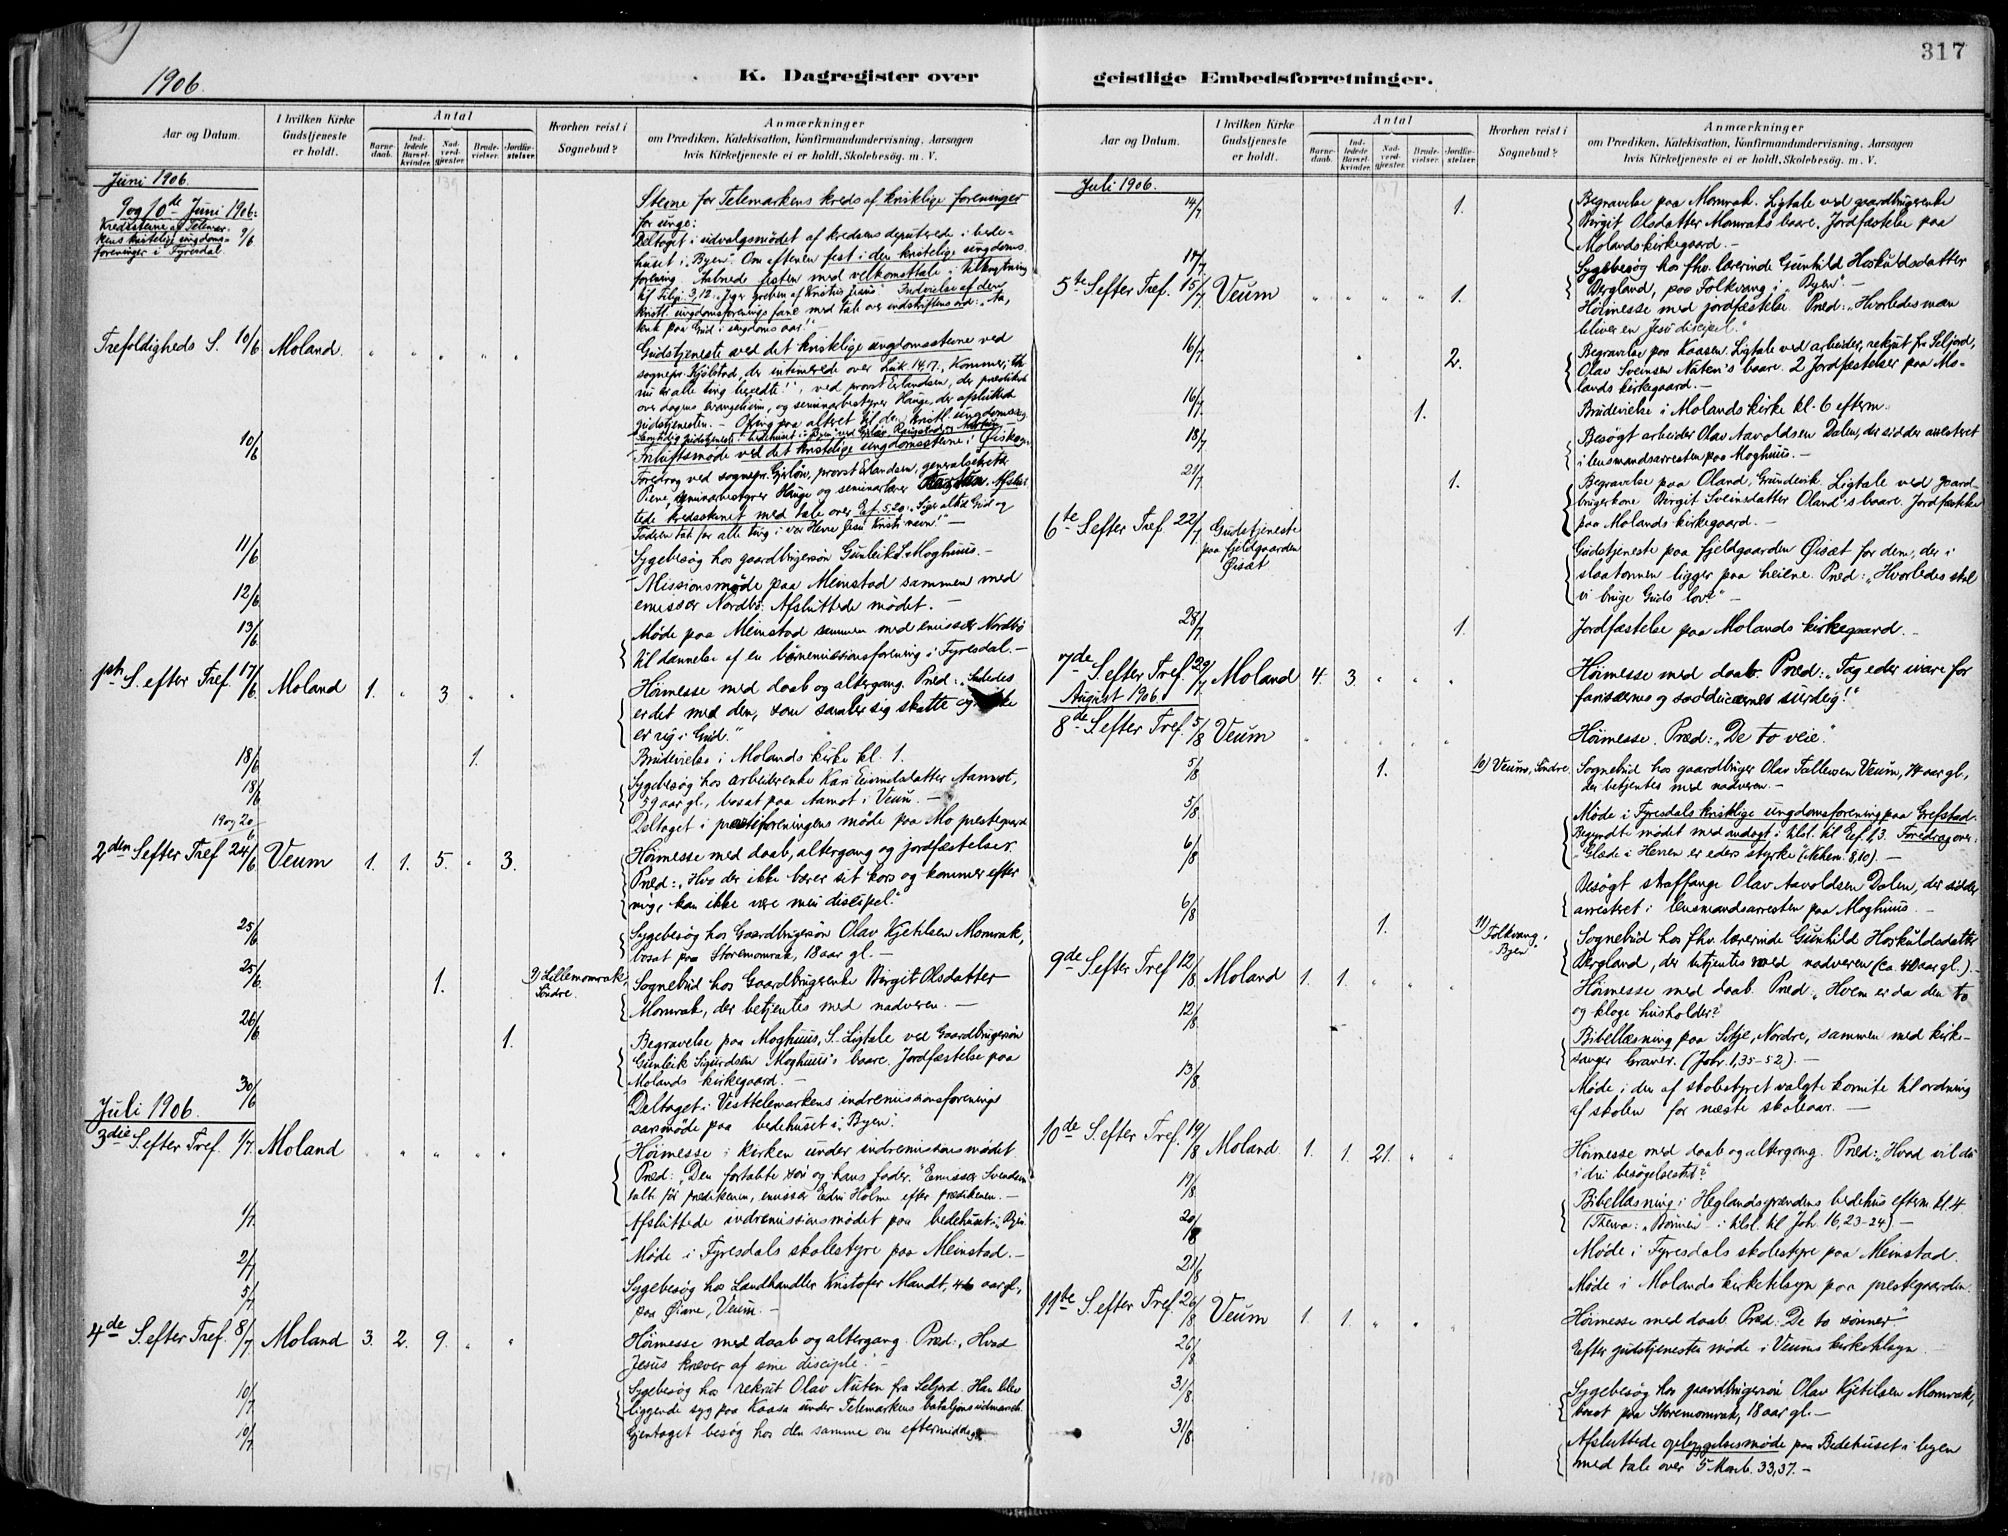 317
1906.
K. Dagregister over
geistlige Embedsforretninger.
Aar og Datum.
I hvilken Kirke Gudstjeneste er holdt.
Antal
Barnedaab.
Indledede Barselkvinder.
Nadverdgjester.
Brudevielser.
Jordfæstelser.
Hvorhen reist i Sognebud?
Anmærkninger
om Prædiken, Katekisation, Konfirmandundervisning, Aarsagen
hvis Kirketjeneste ei er holdt, Skolebesøg. m. V.
Juni 1906.
139
9 og 10de Juni 1906:
Kredsstevne af Telemar-
kens kristelige ungdoms-
foreninger i Fyresdal.
9/6
Stevne for Telemarkens kreds af kristelige foreninger
for unge:
Deltaget i udvalgsmødet af kredsens deputerede i bede-
huset i "Byen". Om aftenen fest i den kristelige ungdoms
forening. Aabnede festen med velkomsttale i tilknytning
til Filip. 3,12: "Jeg er greben af Kristus Jesus". Indvielse af den
kristl. ungdomsforenings fane med tale over indskriftens ord:
tenk paa Gud i ungdoms aar!"
Trefoldigheds S. 10/6 Moland. " " " " "
Gudstjeneste ved det kristelige ungdomsstevne ved
sognepr. Kjølstad, der intimerede over Luk. 14,17: "Kommer, thi
nu er alle ting beredte!", ved provst Erlandsen, der prædiket
over dagens evangelium, og seminarbestyrer Hauge, der afsluttet
gudstjenesten. - Ofring paa alteret til den kristl. ungdomssag
10/6
Friluftsmøde ved det kristelige ungdomsstevne i
Foredrag ved sognepr. provst Erlandsen, generalsekretær
seminarbestyrer Hauge og seminarlærer Afslut-
tede kredsstevnet med tale over Ef. 5,20: "Siger altid Gud og
Faderen tak for alle ting i vor Herre Jesu Kristi navn!" -
11/6 Sygebesøg hos gaardbrugersøn Gunleik S. Moghuus. -
12/6 Missionsmøde paa Meinstad sammen med
emissær Nordbø. Afsluttede mødet. -
13/6 Møde paa Meinstad sammen med emissær Nordbø
til dannelse af en børnemissionsforening i Fyresdal. -
1ste S. efter Tref. 17/6 Moland 1. " 3 " "
Høimesse med daab og altergang. Præd: "Saaledes
er det med den, som samler sig skatte og ikke
er rig i Gud."
18/6 1. Brudevielse i Molands kirke kl. 1.
18/6 Sygebesøg hos arbeiderenke Kari Eivindsdatter Aamot,
59 aar gl., bosat paa Aamot i Veum. -
19 og 20/6 Deltaget i presteforeningens møde paa Mo prestegaard
2den S. efter Tref. 24/6 Veum 1. 1. 5. " 3.
Høimesse med daab, altergang og jordfæstelser.
Præd: "Hvo der ikke bærer sit kors og kommer efter
mig, kan ikke være min discipel."
25/6 Sygebesøg hos Gaardbrugersøn Olav Kjetilsen Momrak,
bosat paa Storemomrak, 18 aar gl. -
25/6 1. 9) Lillemomrak, Søndre.
Sognebud hos Gaardbrugerenke Birgit Olsdatter
Momrak, der betjentes med nadveren. -
26/6 1. Begravelse paa Moghuus, S. Ligtale ved Gaardbrugersøn
Gunleik Sigurdsen Moghuus's baare. Jordfæstelse paa
Molands kirkegaard. -
30/6 Deltaget i Vesttelemarkens indremissionsforenings
aarsmøde paa bedehuset i "Byen".
Juli 1906.
3die S. efter Tref. 1/7. Moland " " " " "
Høimesse i kirken under indremissionsmødet.
Præd: "Den fortabte søn og hans fader." Emissær Svendsen
talte før prædikenen, emissær Edin Holme efter prædikenen. -
1/7. Afsluttede indremissionsmødet paa bedehuset i "Byen".
2/7 Møde i Fyresdals skolestyre paa Meinstad. -
5/7 Sygebesøg hos Landhandler Kristofer Mandt, 46 aar gl.,
paa Øiane, Veum. -
4de S. efter Tref. 8/7 Moland 3. 2. 9. " "
Høimesse med daab og altergang. Præd: "Hvad
Jesus kræver af sine disciple." -
10/7 Sygebesøg hos rekrut Olav Nuten fra Seljord. Han blev
liggende syg paa Kaasa under Telemarkens bataljons udmarch.
10/7 Gjentaget besøg hos den samme om eftermiddagen.
151
Aar og Datum.
I hvilken Kirke Gudstjeneste er holdt.
Antal
Barnedaab.
Indledede Barselkvinder.
Nadverdgjester.
Brudevielser.
Jordfæstelser.
Hvorhen reist i Sognebud?
Anmærkninger
om Prædiken, Katekisation, Konfirmandundervisning, Aarsagen
hvis Kirketjeneste ei er holdt, Skolebesøg. m. V.
Juli 1906.
151
14/7 1. Begravelse paa Momrak. Ligtale ved gaardbrugerenke
Birgit Olsdatter Momraks baare. Jordfæstelse paa
Molands kirkegaard. -
Sygebesøg hos fhv. lærerinde Gunhild Hoskuldsdatter
Bergland, paa Folkvang i "Byen".
5te S. efter Tref. 15/7 Veum " " " " 1.
Høimesse med jordfæstelse. Præd: "Hvorledes man
bliver en Jesu discipel."
16/7 2. Begravelse paa Kaasen. Ligtale ved arbeider, rekrut fr. Seljord,
Olav Sveinsen Nuten's baare. 2 Jordfæstelser paa Mo-
lands kirkegaard. -
16/7 1. Brudevielse i Molands kirke kl. 6 efterm.
18/7 Besøgt arbeider Olav Aavoldsen Dalen, der sidder arresteret
i lensmandsarresten paa Moghuus. -
21/7 1. Begravelse paa Oland, Grundevik. Ligtale ved gaard-
brugerkone Birgit Sveinsdatter Oland's baare. Jordfæstelse
paa Molands kirkegaard. -
6te S. efter Tref. 22/7 Gudstjeneste
paa fjeldgaarden
Øisæt
Gudstjeneste paa fjeldgaarden Øisæt for dem, der i
slaatonnen ligger paa heiene. Præd: "Hvorledes skal
vi bruge Guds lov?" -
28/7 1. Jordfæstelse paa Molands kirkegaard. -
7de S. efter Tref. 29/7 Moland 4. 3. " " "
Høimesse med daab. Præd: "Tag eder ivare for
farisæernes og sadducæernes surdeig!"
August 1906.
8de S. efter Tref. 5/8 Veum " " " " "
Høimesse. Præd: "De to veie."
5/8 1. 10) Veum, Søndre.
Sognebud hos gaardbruger Olav Tallevsen Veum, 74 aar gl.,
der betjentes med nadveren. -
5/8 Møde i Fyresdals kristelige ungdomsforening paa Grefstad.
Begyndte mødet med andagt i tilsl. til Ef. 1,3. Foredrag over:
"Glæde i Herren er eders styrke" (Nehem. 8,10). -
6/8 Besøgt straffange Olav Aavoldsen Dalen, der sidder
arresteret i lensmandsarresten paa Moghuus. -
6/8 1. 11) Folkvang, Byen
Sognebud hos fhv. lærerinde Gunhild Hoskuldsdatter
Bergland, der betjentes med nadveren (ca. 40 aar gl.). -
9de S. efter Tref. 12/8 Moland 1. 1. " " "
Høimesse med daab. Præd: "Hvem er da den tro
og kloge husholder?"
12/8 Bibellæsning paa Sitje, Nordre, sammen med kirke-
sanger Graver. (Joh. 1,35-52). -
13/8. Møde i den af skolestyret valgte komite til ordning
af skolen for næste skoleaar. -
10de S. efter Tref. 19/8 Moland 1. 1. 21. " "
Høimesse med daab og altergang. Præd: "Hvad vil du
i din besøgelsestid?"
19/8. Bibellæsning i Heglandsgrændens bedehus efterm. kl. 4.
(Thema: "Bønnen" i tilsl. til Joh. 16,23-24). -
20/8 Møde i Fyresdals skolestyre paa Meinstad.
21/8 Møde i Molands kirketilsyn paa prestegaarden.
11te S. efter Tref. 26/8 Veum 1. 1. " " "
Høimesse med daab. Præd: "De to sønner."
26/8. Efter gudstjenesten møde i Veums kirketilsyn.
31/8. Sygebesøg hos gaardbrugersøn Olav Kjetilsen Momrak,
bosat paa Storemomrak, 18 aar gl. -
31/8. Afsluttede opbyggelsesmøde paa Bedehuset i byen
med tale over 5 Moseb. 33,37. -
180